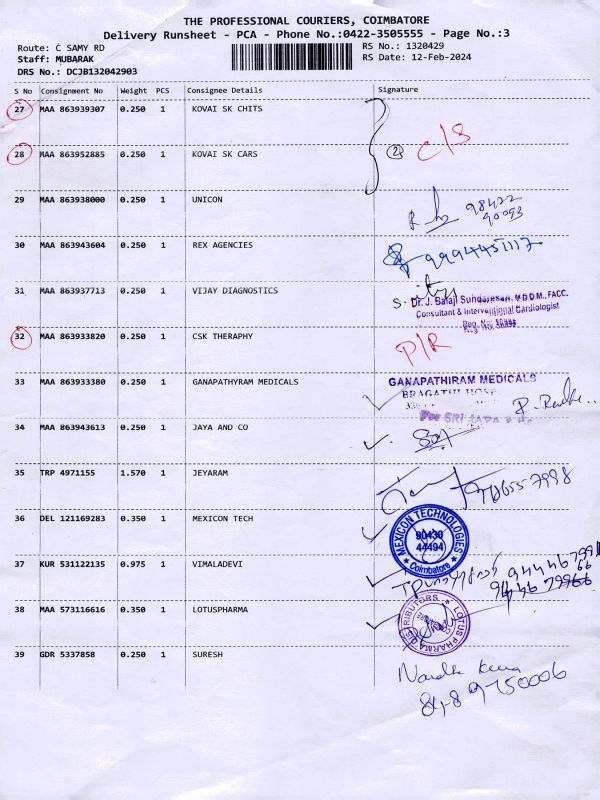 THE PROFESSIONAL COURIERS, COIMBATORE
Delivery Runsheet - PCA - Phone No.:0422-3505555 - Page No.:3
Route: C SAMY RD
RS No.: 1320429
Staff: MUBARAK
RS Date: 12-Feb-2024
DRS No.: DCJB132042903
S No Consignment No Weight PCS Consignee Details Signature
27 MAA 863939307 0.250 1 KOVAI SK CHITS
28 MAA 863952885 0.250 1 KOVAI SK CARS
(2) C/S
29 MAA 863938000 0.250 1 UNICON
98422
90093
30 MAA 863943604 0.250 1 REX AGENCIES
9994451117
31 MAA 863937713 0.250 1 VIJAY DIAGNOSTICS
Dr. J. Balaji Sundaresan, M.D.D.M., FACC.
Consultant & Interventional Cardiologist
32 MAA 863933820 0.250 1 CSK THERAPHY
P/R
33 MAA 863933380 0.250 1 GANAPATHYRAM MEDICALS
GANAPATHIRAM MEDICALS
34 MAA 863943613 0.250 1 JAYA AND CO
35 TRP 4971155 1.570 1 JEYARAM
36 DEL 121169283 0.350 1 MEXICON TECH
MEXICON TECHNOLOGIES
90430
44494
Coimbatore
37 KUR 531122135 0.975 1 VIMALADEVI
38 MAA 573116616 0.350 1 LOTUSPHARMA
LOTUS PHARMA DISTRIBUTORS
39 GDR 5337858 0.250 1 SURESH